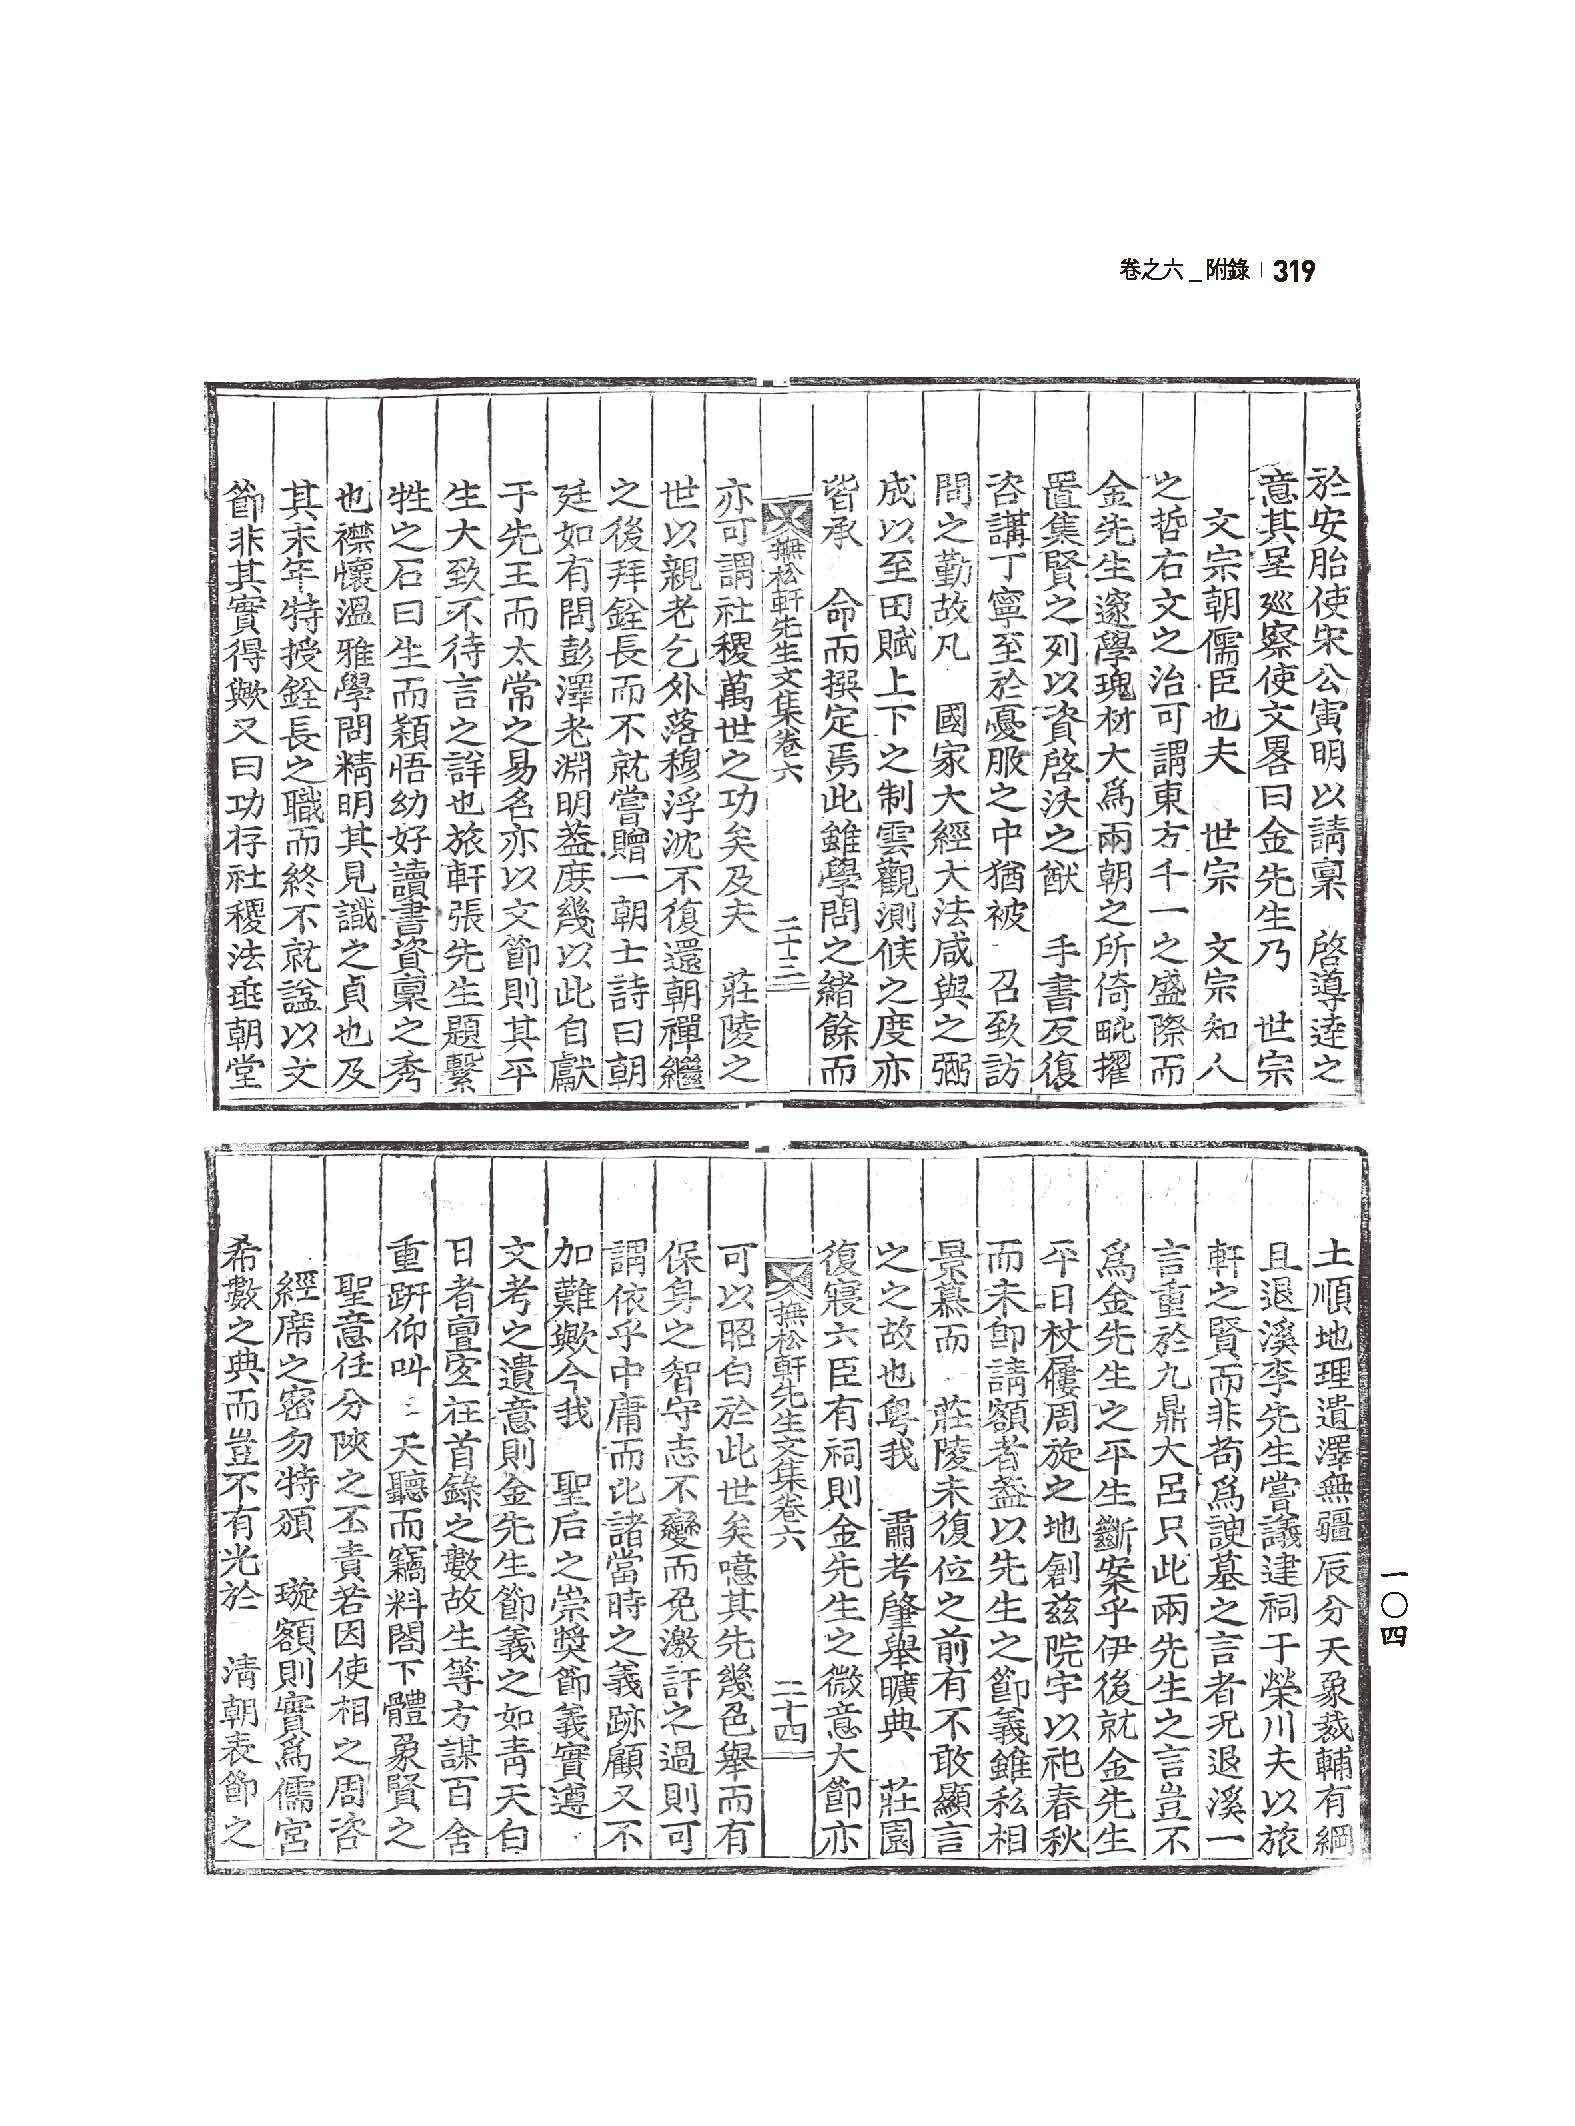 卷之六 _ 附錄 | 319
於安胎使宋公寅明以請稟 啓導達之
意其呈廵察使文畧曰金先生乃 世宗
文宗朝儒臣也夫 世宗 文宗知人
之哲右文之治可謂東方千一之盛際而
金先生邃學瑰材大爲兩朝之所倚毗擢
置集賢之列以資啓沃之猷 手書反復
咨講丁寧至於憂服之中猶被 召致訪
問之勤故凡 國家大經大法咸與之弼
成以至田賦上下之制雲觀測候之度亦
皆承 命而撰定焉此雖學問之緖餘而
撫松軒先生文集卷六 二十三
亦可謂社稷萬世之功矣及夫 莊陵之
世以親老乞外落穆浮沈不復還朝禪繼
之後拜銓長而不就嘗贈一朝士詩曰朝
廷如有問彭澤老淵明盖庶幾以此自獻
于先王而太常之易名亦以文節則其平
生大致不待言之詳也旅軒張先生題繫
牲之石曰生而穎悟幼好讀書資稟之秀
也襟懷溫雅學問精明其見識之貞也及
其末年特授銓長之職而終不就諡以文
節非其實得歟又曰功存社稷法垂朝堂
土順地理遺澤無疆辰分天象裁輔有綱
且退溪李先生嘗議建祠于榮川夫以旅
軒之賢而非苟爲諛墓之言者况退溪一
言重於九鼎大呂只此兩先生之言豈不
爲金先生之平生斷案乎伊後就金先生
平日杖屨周旋之地創玆院宇以祀春秋
而未卽請額者盖以先生之節義雖私相
景慕而 莊陵未復位之前有不敢顯言
之之故也粤我 肅考肇舉曠典 莊園
復寢六臣有祠則金先生之微意大節亦
撫松軒先生文集卷六 二十四
可以昭白於此世矣噫其先幾色舉而有
保身之智守志不變而免激訐之過則可
謂依乎中庸而比諸當時之義跡顧又不
加難歟今我 聖后之崇奬節義實遵
文考之遺意則金先生節義之如靑天白
日者亶宜在首錄之數故生等方謀百舍
重趼仰叫 天聽而竊料閤下體象賢之
聖意任分陝之丕責若因使相之周咨
經席之密勿特頒 璇額則實爲儒宮
希數之典而豈不有光於 淸朝表節之
一〇四